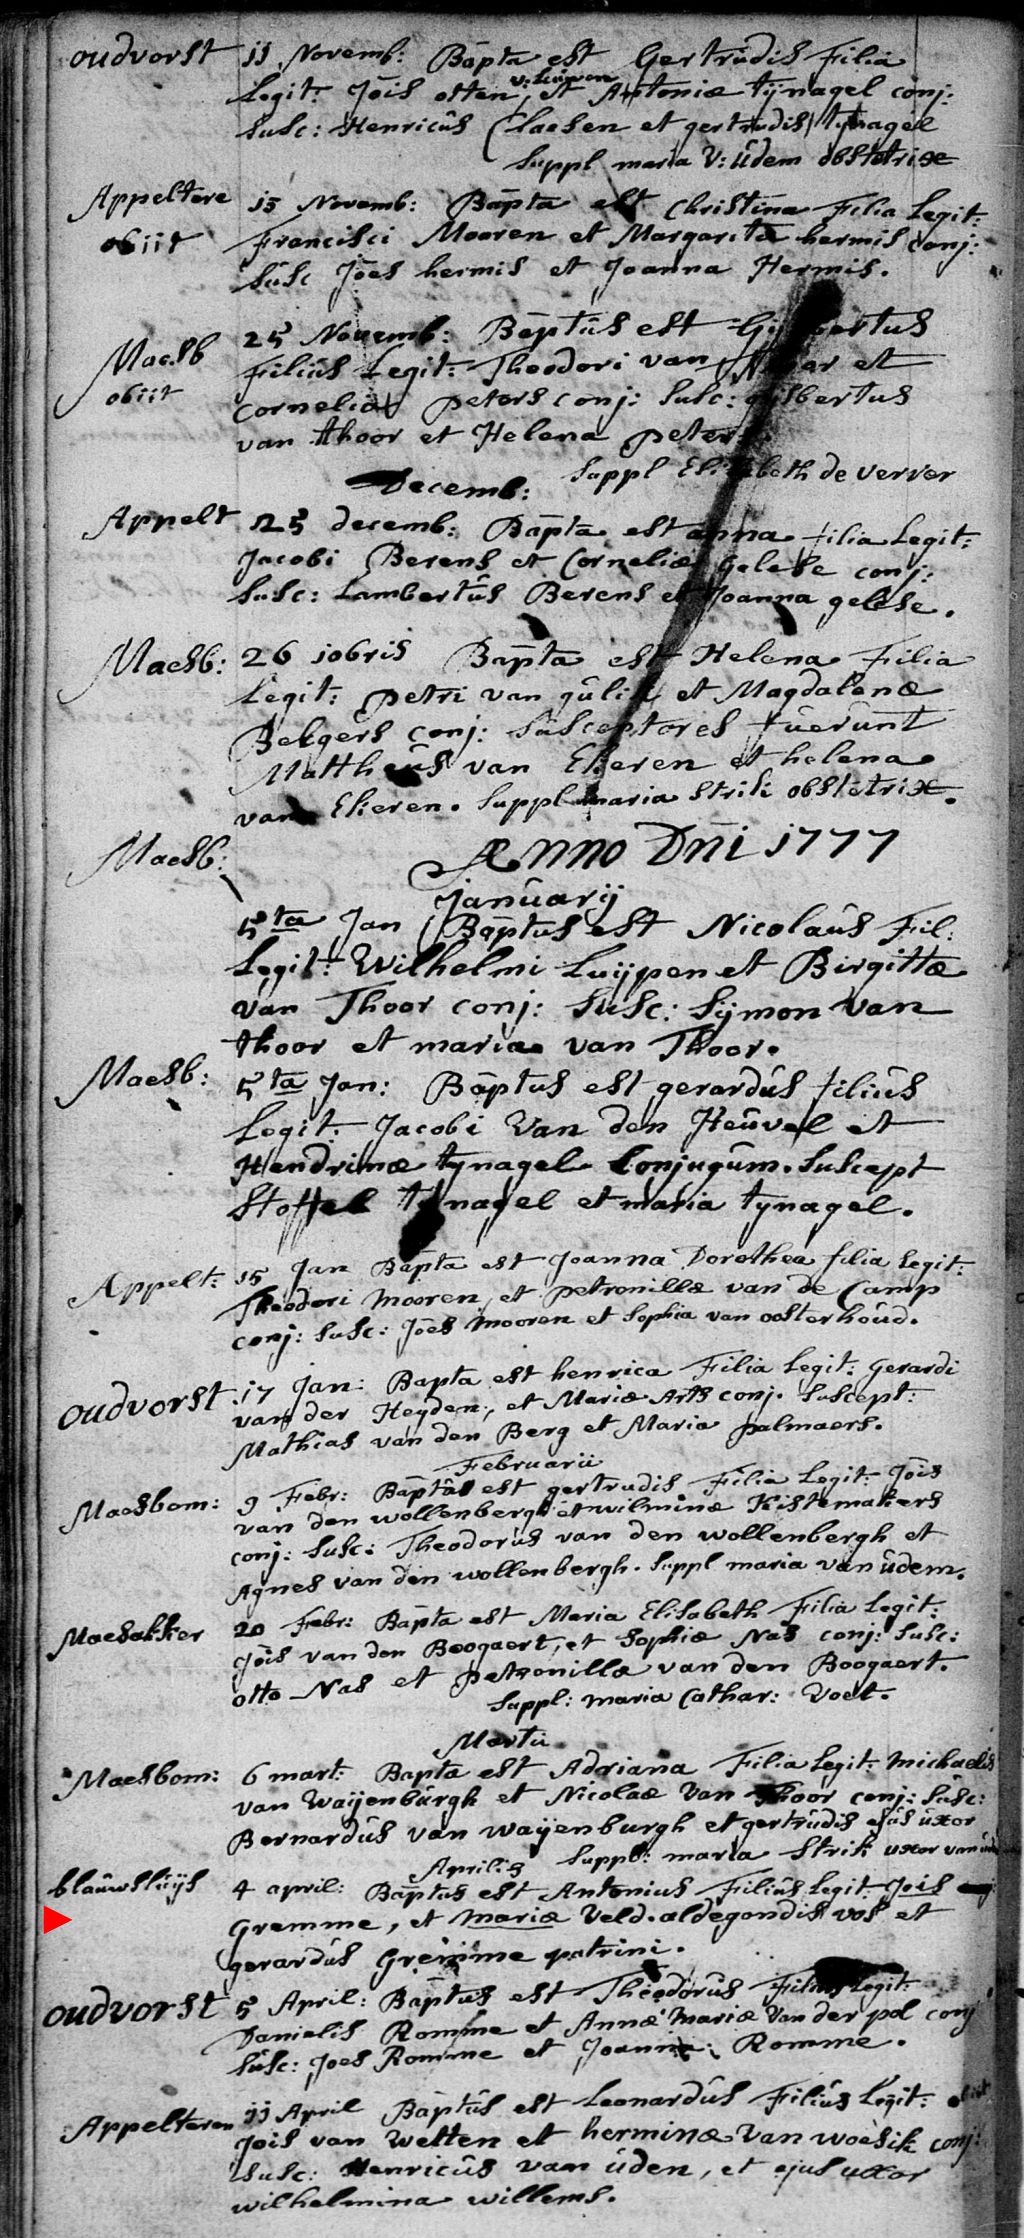 oudvorst 11 Novemb: Bapta est Gertrudis Filia
Legit: Jois otten v: Luipen, et Antoniæ tijnagel conj:
Susc: Henricus Claesen et gertrudis tijnagel
Suppl maria v: üdem obstetrix
Appeltere 15 Novemb: Bapta est Christina Filia Legit:
obiit Francisci Mooren et Margaritæ hermis conj:
Susc Joes hermis et Joanna Hermis.
25 Novemb: Baptus est
Maesb Filius Legit: Theodori van et
obiit Corneliæ peters conj: Susc: gijsbertus
van thoor et Helena peters.
Suppl Elizabeth de verver
Decemb:
Appelt 25 decemb: Bapta est anna filia Legit:
Jacobi Berens et Corneliæ Gelese conj:
Susc: Lambertus Berens et Joanna gelese.
Maesb: 26 10bris Bapta est Helena Filia
Legit: petri van gulik et Magdalenæ
Belgers conj: Susceptores fuerunt
Mattheus van Elieren et helena
van Elieren. Suppl maria Strik obstetrix.
Anno Dni 1777
Maesb:
Januarij
5ta Jan Baptus est Nicolaus Fil:
Legit: Wilhelmi Luijpen et Birgittæ
van Thoor conj: Susc: Sijmon van
thoor et maria van Thoor.
Maesb: 5ta Jan: Baptus est gerardus filius
Legit: Jacobi Van den Heuvel et
Hendrinæ tynagel Conjugum. Suscept
Stoffel tynagel et maria tynagel.
Appelt: 15 Jan Bapta est Joanna Dorothea filia Legit:
Theodori Mooren, et petronillæ van de Camp
conj: Susc: Joes Mooren et Sophia van oosterhoud.
oudvorst 17 Jan: Bapta est henrica Filia Legit: Gerardi
van der Heyden, et Mariæ Arts conj. Suscept:
Mathias van den Berg et Maria palmaers.
Februarii
Maesbom: 9 Febr: Bapta est gertrudis Filia Legit: Jois
van den wollenbergh et wilminæ Kistemakers
conj: Susc: Theodorus van den wollenbergh et
Agnes van den wollenbergh. Suppl maria van üdem.
Maesakker 20 Febr: Bapta est Maria Elisabeth Filia Legit:
Jois van den Boogaert, et Sophiæ Nas conj: Susc:
otto Nas et petronilla van den Boogaert.
Suppl: maria Cathar: Voet.
Martii
Maesbom: 6 mart: Bapta est Adriana Filia Legit: Michaelis
van Waijenburgh et Nicolaæ Van Thoor conj: Susc:
Bernardus van waijenburgh et gertrudis ejus uxor
Suppl: maria Strik uxor van
Aprilis
blauwsluijs 4 april: Baptus est Antonius Filius Legit: Jois
Gremme, et mariæ Veld. aldegondis vos et
gerardus Gremme patrini.
oudvorst 5 April: Baptus est Theodorus Filius Legit:
Danielis Romme et Annæ Mariæ Van der pol conj
Susc: Joes Romme et Joanna: Romme.
Appelteren 11 April Baptus est Leonardus Filius Legit: obiit
Jois van Welten et herminæ Van woesik conj:
Susc: Henricus van uden, et ejus uxor
wilhelmina willems.